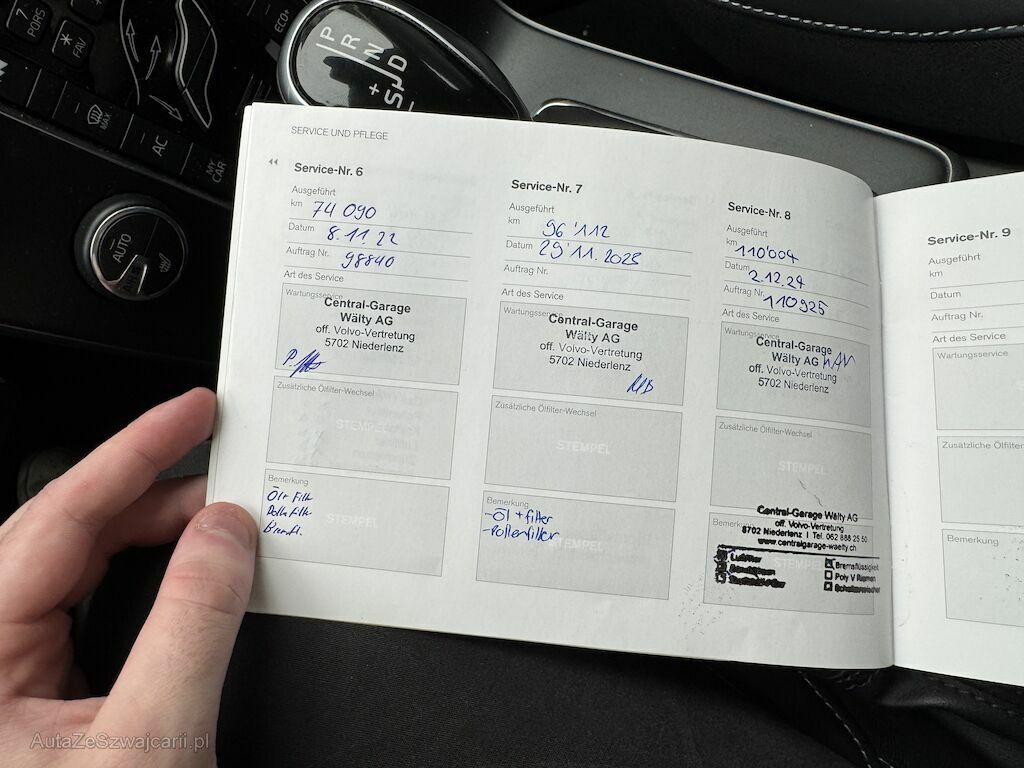 7
PQRS
*
FAV
ECO+
MAX
AC
MY
CAR
AUTO
P R N D
+
S
SERVICE UND PFLEGE
Service-Nr. 6
Ausgeführt
km 74 090
Datum 8.11.22
Auftrag Nr. 98840
Art des Service
Wartungsservice
Central-Garage
Wälty AG
off. Volvo-Vertretung
5702 Niederlenz
Zusätzliche Ölfilter-Wechsel
STEMPEL
Bemerkung
Öl + Filter
Pollenfilter
STEMPEL
Service-Nr. 7
Ausgeführt
km 96'112
Datum 29'11.2023
Auftrag Nr.
Art des Service
Wartungsservice
Central-Garage
Wälty AG
off. Volvo-Vertretung
5702 Niederlenz
Zusätzliche Ölfilter-Wechsel
STEMPEL
Bemerkung
-Öl + filter
-Pollenfilter
STEMPEL
Service-Nr. 8
Ausgeführt
km 110'004
Datum 2.12.24
Auftrag Nr. 110925
Art des Service
Wartungsservice
Central-Garage
Wälty AG
off. Volvo-Vertretung
5702 Niederlenz
Zusätzliche Ölfilter-Wechsel
STEMPEL
Bemerkung
Central-Garage Wälty AG
off. Volvo-Vertretung
5702 Niederlenz I Tel. 062 888 25 50
www.centralgarage-waelty.ch
Luftfilter
Bremsflüssigkeit
Poly V Riemen
STEMPEL
Service-Nr. 9
Ausgeführt
km
Datum
Auftrag Nr.
Art des Service
Wartungsservice
Zusätzliche Ölfilter
Bemerkung
AutaZeSzwajcarii.pl